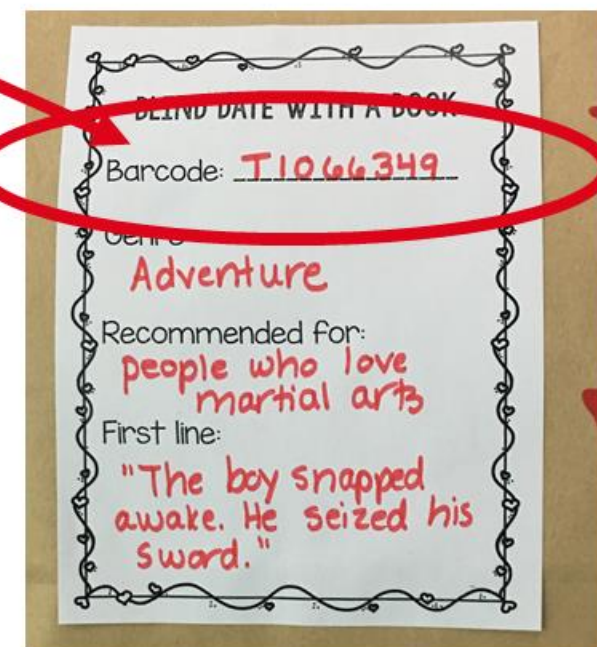 BLIND DATE WITH A BOOK
Barcode: T1066349
Genre
Adventure
Recommended for:
people who love
martial arts
First line:
"The boy snapped
awake. He seized his
sword."